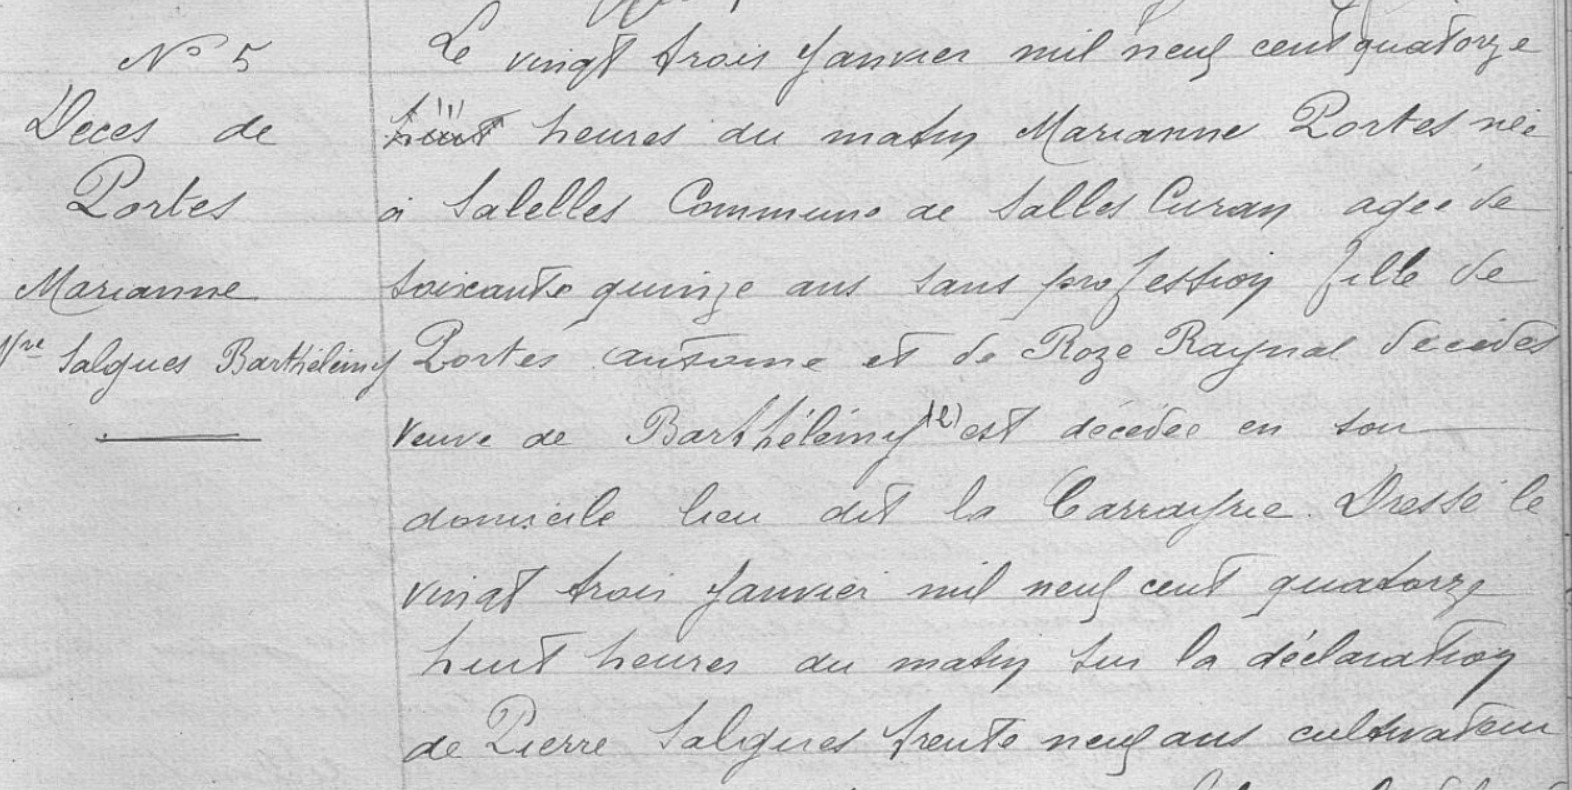 N° 5
Deces de
Portes
Marianne
Vve Salgues Barthélémy
Le vingt trois Janvier mil neuf cent quatorze
huit heures du matin Marianne Portes née
à Salelles Commune de Salles Curan agée de
soixante quinze ans sans profession fille de
Portes antoine et de Roze Raynal décédés
veuve de Barthélémy (2) est décédée en son
domicile lieu dit la Carrayrie. Dressé le
vingt trois Janvier mil neuf cent quatorze
huit heures du matin sur la déclaration
de Pierre Salgues trente neuf ans cultivateur